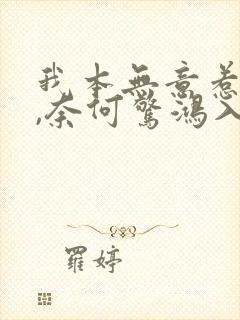 我本無意惹
,奈何驚鴻入
羅婷